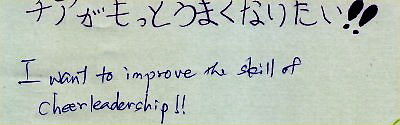 チアがもっとうまくなりたい!!
I want to improve the skill of
cheerleadership!!